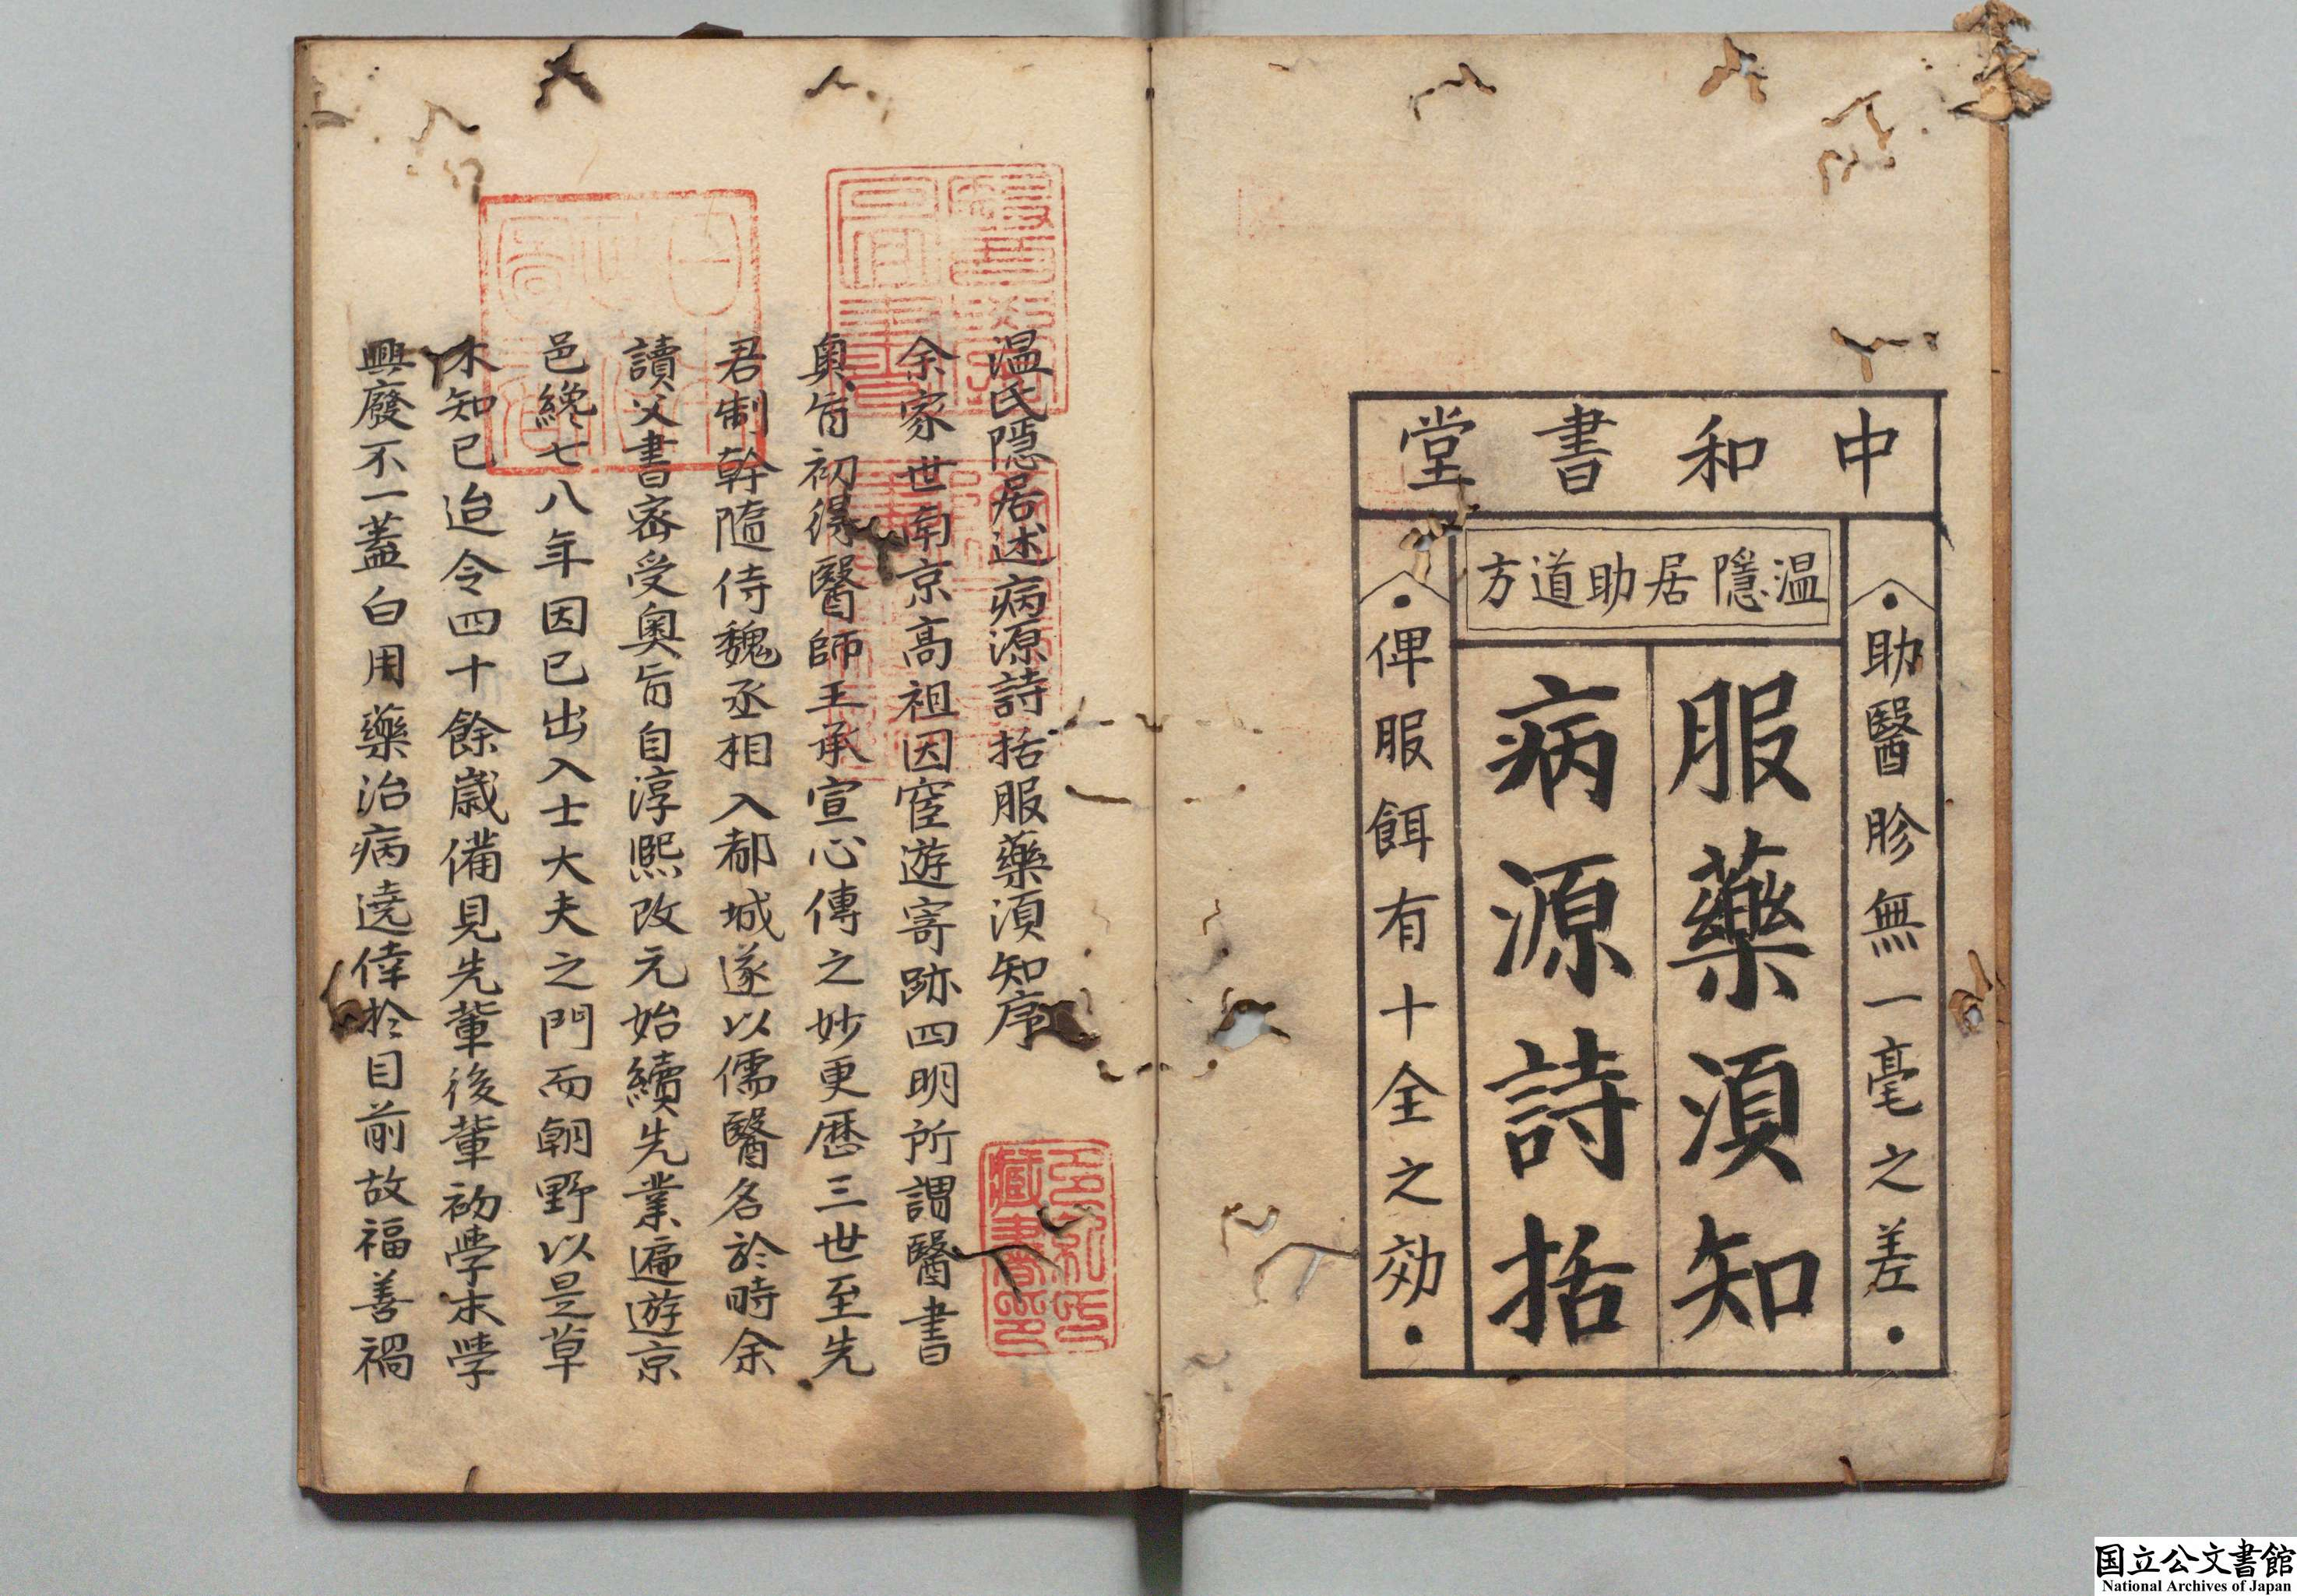 中和書堂
温隱居助道方
助醫胗無一毫之差
服藥湏知
病源詩括
俾服餌有十全之効
温氏隱居述病源詩括服藥湏知序
余家世南京高祖因宦遊寄跡四明所謂醫書
奥旨初得醫師王承宣心傳之妙更歷三世至先
君制幹隨侍魏丞相入都城遂以儒醫名於時余
讀父書密受奥旨自淳熙改元始續先業遍遊京
邑纔七八年因已出入士大夫之門而朝野以是草
木知已迨今四十餘歲備見先輩後輩初學末學
興廢不一蓋白用藥治病僥倖於目前故福善禍
國立公文書館
National Archives of Japan